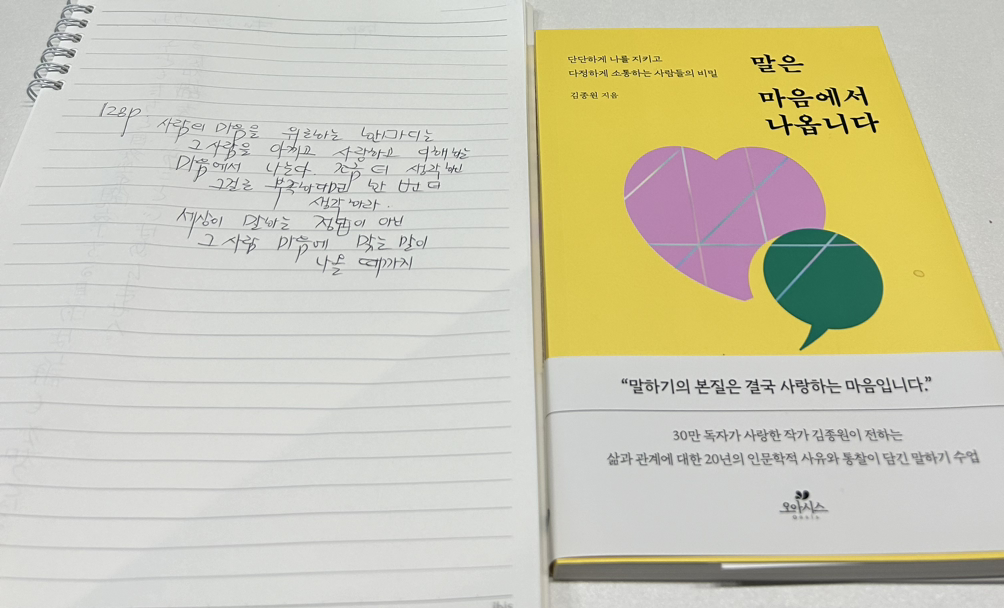 128p
사람의 마음을 위하는 한마디는
그 사람을 아끼고 사랑하고 이해하는
마음에서 나온다. 조금 더 생각하면
그걸로 부족하다면 한 번 더
생각하라.
세상이 말하는 정답이 아닌
그 사람 마음에 맞는 말이
나올 때까지
단단하게 나를 지키고
다정하게 소통하는 사람들의 비밀
김종원 지음
말은
마음에서
나옵니다
“말하기의 본질은 결국 사랑하는 마음입니다.”
30만 독자가 사랑한 작가 김종원이 전하는
삶과 관계에 대한 20년의 인문학적 사유와 통찰이 담긴 말하기 수업
오아시스
Oasis